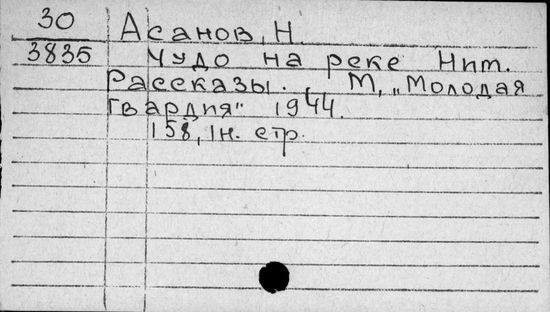 30 Асанов, Н.
3835 Чудо на реке Нпт.
Рассказы. М, „Молодая
Гвардия" 1944.
158, 1н. стр.